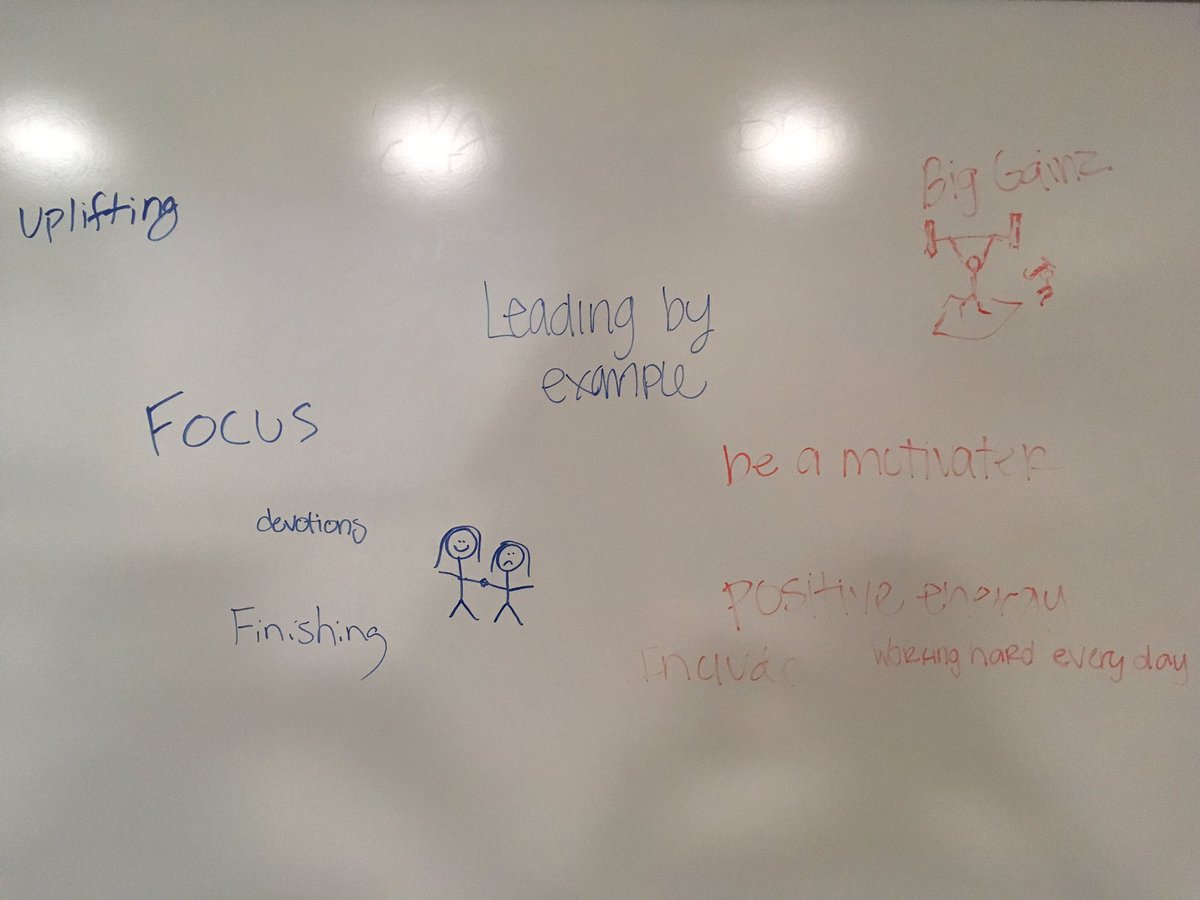 Big Gainz
Uplifting
Leading by
example
Focus
be a motivater
devotions
positive energy
Finishing
Working hard every day
Include